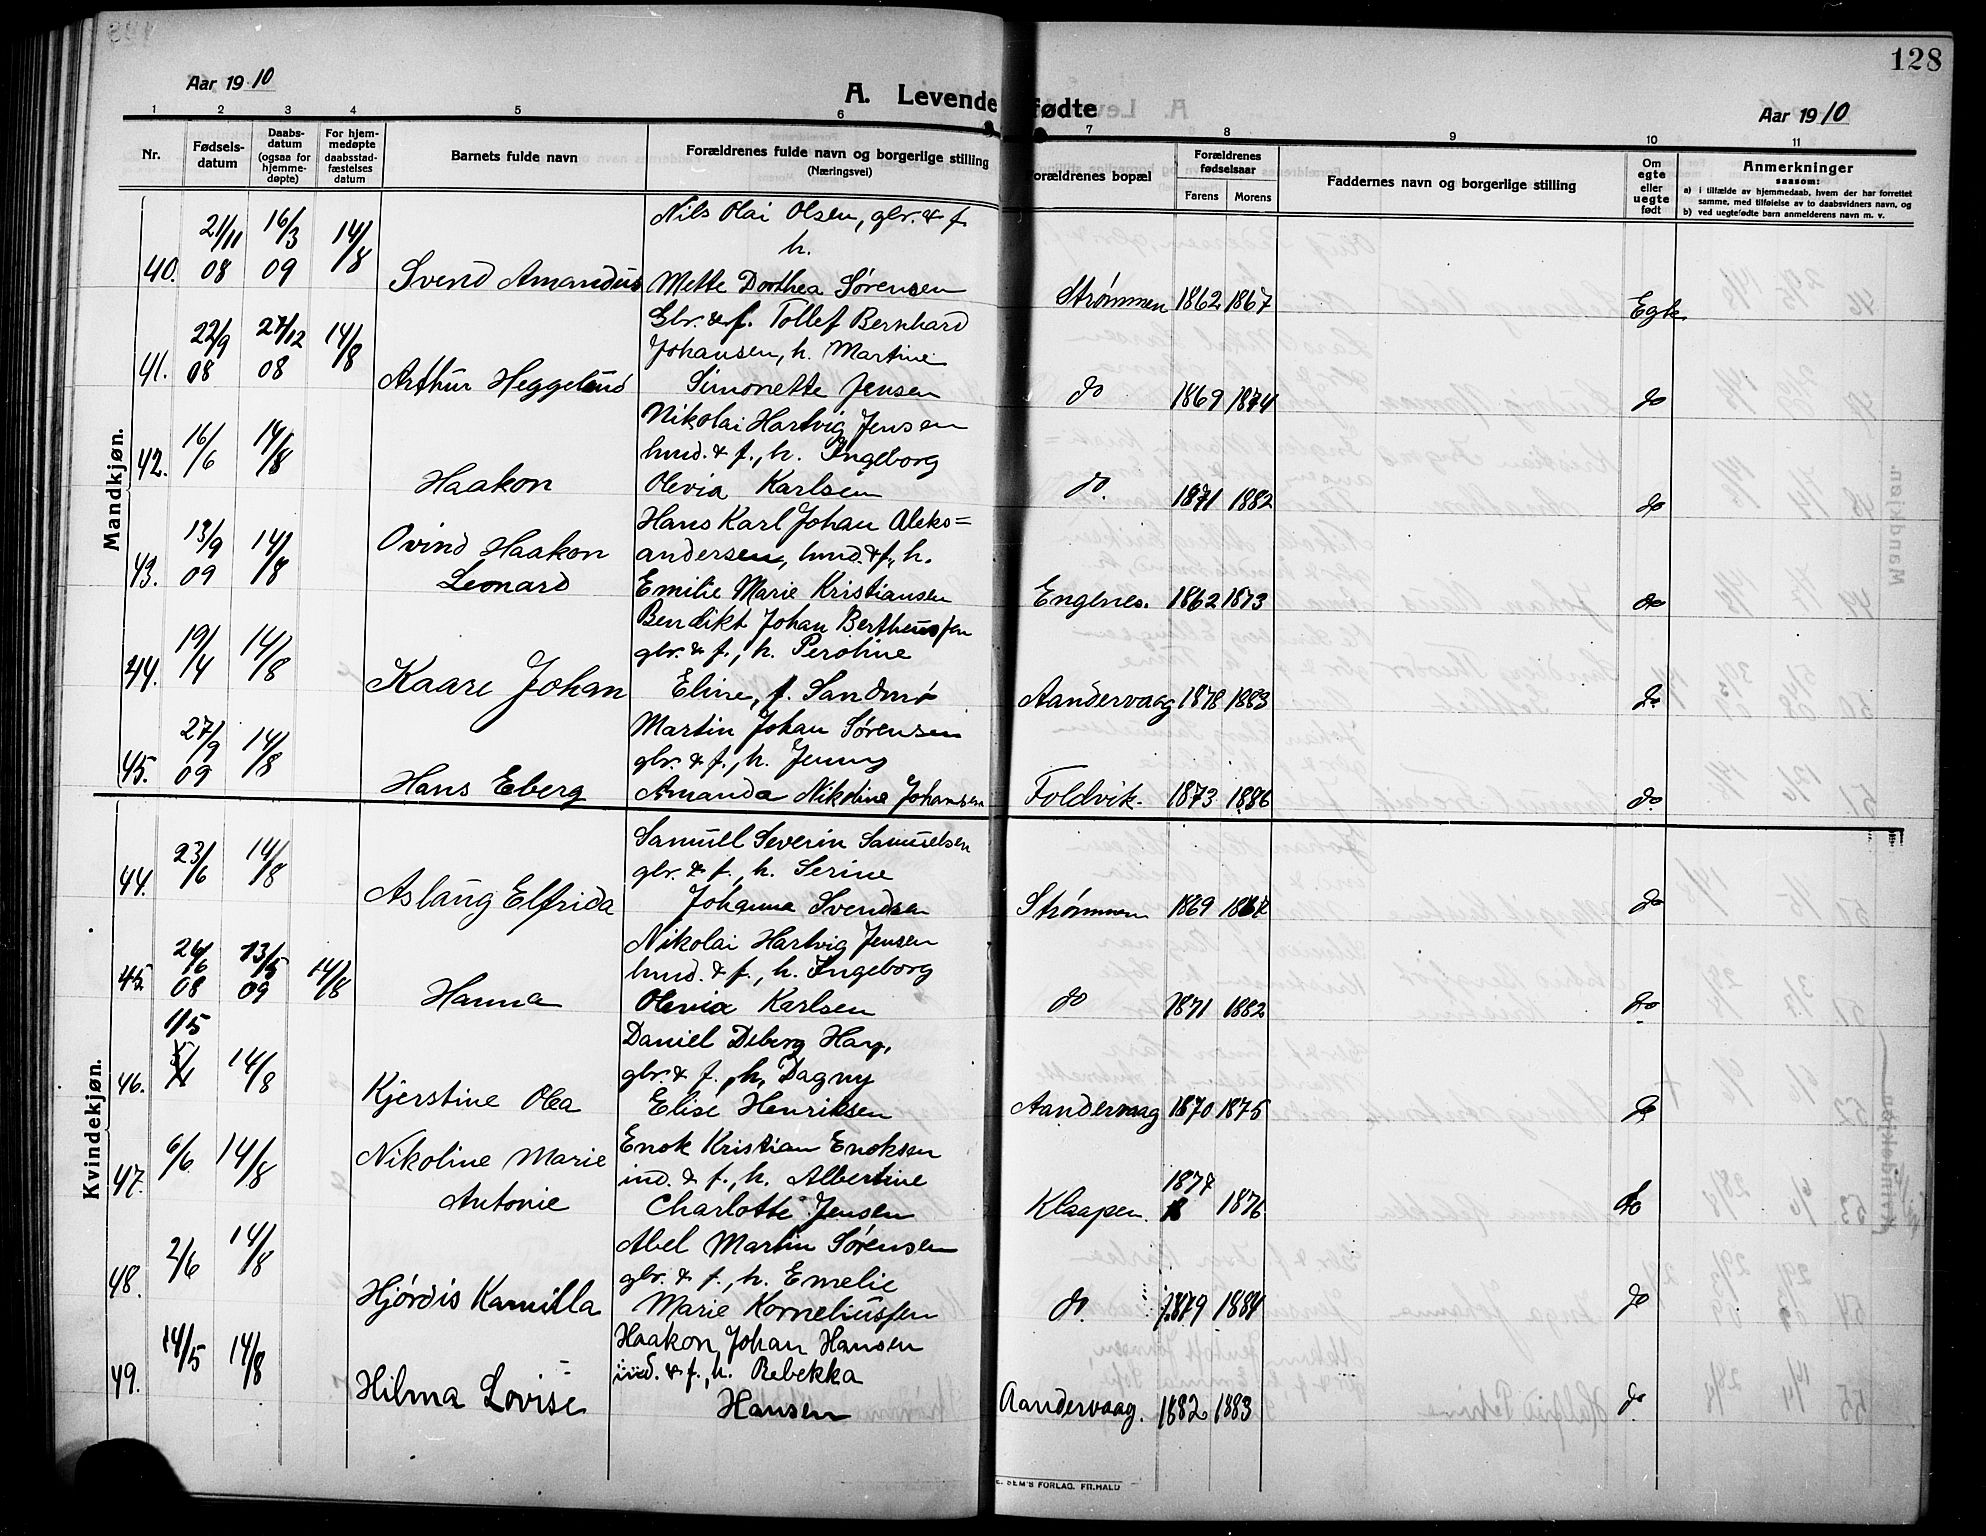 128
Aar 1910
A. Levendefødte
Aar 1910
1 2 3 4 5 6 7 8 9 10 11
Nr.
Fødsels-
datum
Daabs-
datum
(ogsaa for
hjemme-
døpte)
For hjem-
medøpte
daabsstad-
fæstelses
datum
Barnets fulde navn
Forældrenes fulde navn og borgerlige stilling
(Næringsvei)
Forældrenes bopæl
Forældrenes
fødselsaar
Farens Morens
Faddernes navn og borgerlige stilling
Om
egte
eller
uegte
født
Anmerkninger
saasom:
a) i tilfælde av hjemmedaab, hvem der har forrettet
samme, med tilføielse av to daabsvidners navn, og
b) ved uegtefødte barn anmelderens navn m. v.
Mandkjøn.
Nils Olai Olsen, gbr. & f.
21/11 16/3 14/8 h.
40. 08 09 Svend Amandus Mette Dorthea Sørensen Strømmen 1862 1867 Egte
22/9 27/12 14/8 Gbr. & f. Tollef Bernhard
41. 08 08 Johansen, h. Martine
Arthur Heggelund Simonette Jensen do 1869 1874 do
Nikolai Hartvig Jensen
42. 16/6 14/8 hmd. & f., h. Ingeborg
Haakon Olevia Karlsen do. 1871 1882 do
13/9 14/8 Ovind Haakon Hans Karl Johan Aleks=
43. 09 Leonard andersen, hmd. & f., h.
Emilie Marie Kristiansen Engenes. 1862 1873 do
Bendikt Johan Bertheussen
44. 19/4 14/8 gbr. & f., h. Peroline
Kaare Johan Eline, f. Sandmo Aandervaag 1878 1883 do
27/9 14/8 Martin Johan Sørensen
45. 09 gbr. & f., h. Jenny
Hans Eberg Amanda Nikoline Johansen Foldvik. 1873 1886 do
Kvindekjøn.
Samuel Severin Samuelsen
44. 23/6 14/8 gbr. & f., h. Serine
Aslaug Elfrida Johanna Svendsen Strømmen 1869 do
26/6 13/5 14/8 Nikolai Hartvig Jensen
45. 08 09 hmd. & f., h. Ingeborg
Hanna Olevia Karlsen do 1871 1882 do
11/5 Daniel Deberg Hay,
46. 14/8 gbr. & f., h. Dagny
Kjerstine Olea Elise Henriksen Aandervaag 1870 1875 do
47. 6/6 14/8 Nikoline Marie Enok Kristian Enoksen
Antonie ind. & f., h. Albertine
Charlotte Jensen Klaapen. 1874 1876 do
48. 2/6 14/8 Abel Martin Sørensen
gbr. & f., h. Emelie
Hjórdis Kamilla Marie Korneliussen do. 1879 1884 do
49. 14/5 14/8 Haakon Johan Hansen
ind. & f., h. Rebekka
Hilma Lovise Hansen Aandervaag. 1882 1883 do
E. SEM'S FORLAG. FR.HALD